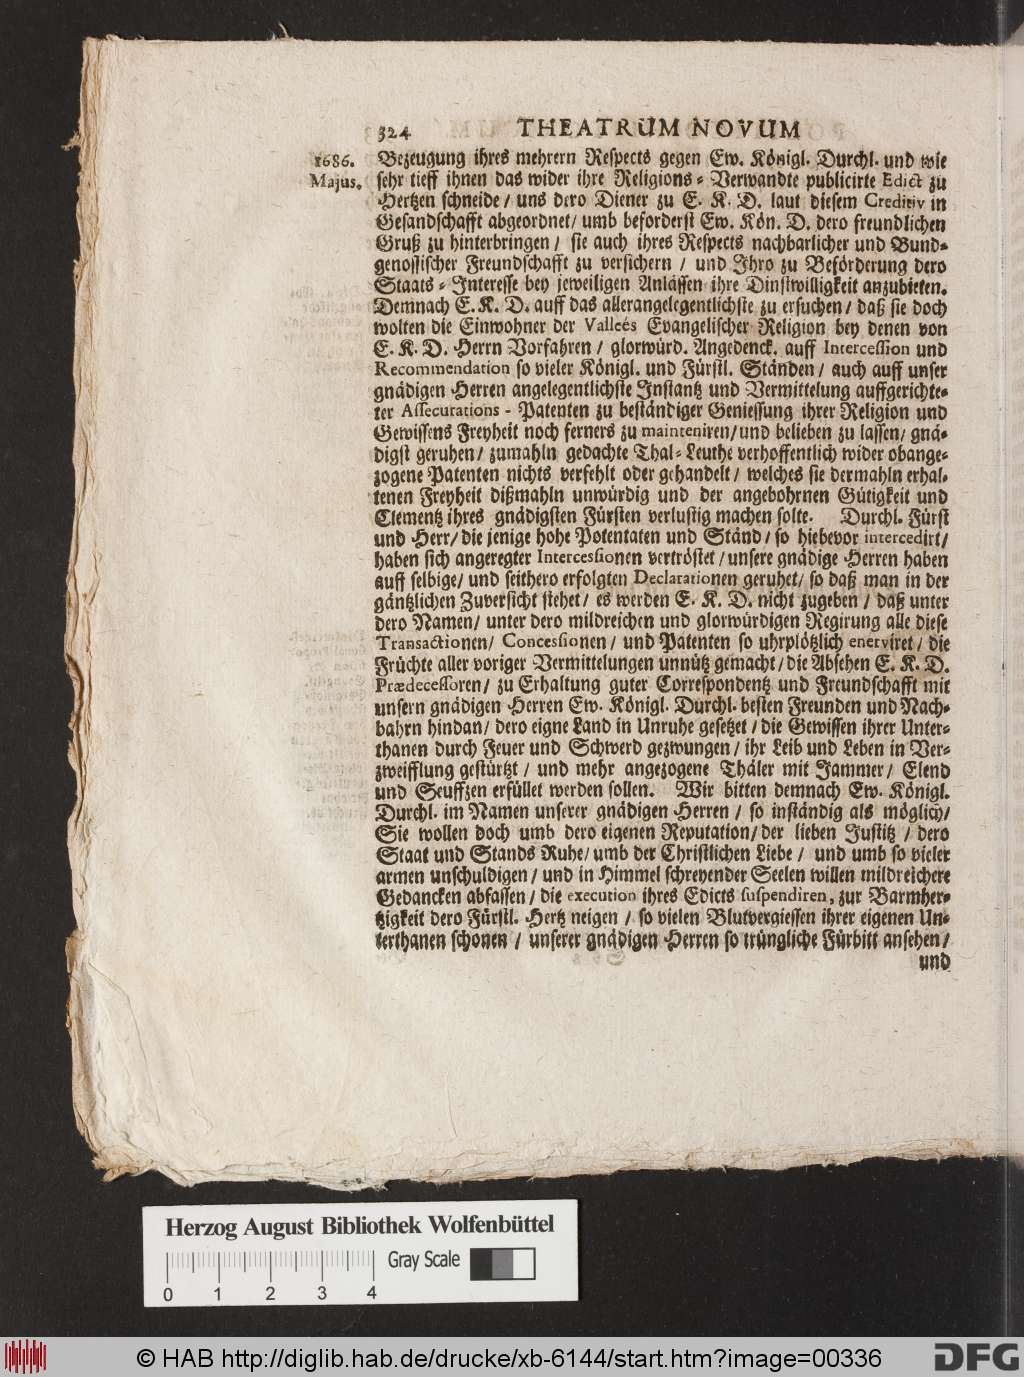 324 THEATRUM NOVUM
1686.
Majus.
Bezeugung ihres mehrern Respects gegen Ew. Königl. Durchl. und wie
sehr tieff ihnen das wider ihre Religions-Verwandte publicirte Edict zu
Hertzen schneide/ uns dero Diener zu E. K. D. laut diesem Creditiv in
Gesandschafft abgeordnet/ umb beforderst Ew. Kön. D. dero freundlichen
Gruß zu hinterbringen/ sie auch ihres Respects nachbarlicher und Bund-
genossischer Freundschafft zu versichern / und Ihro zu Beförderung dero
Staats-Interesse bey jeweiligen Anlässen ihre Dinstwilligkeit anzubieten.
Demnach E. K. D. auff das allerangelegentlichste zu ersuchen/ daß sie doch
wolten die Einwohner der Valleés Evangelischer Religion bey denen von
E. K. D. Herrn Vorfahren / glorwürd. Angedenck. auff Intercession und
Recommendation so vieler Königl. und Fürstl. Ständen/ auch auff unser
gnädigen Herren angelegentlichste Instantz und Vermittelung auffgerichte-
ter Assecurations-Patenten zu beständiger Geniessung ihrer Religion und
Gewissens Freyheit noch ferners zu mainteniren/und belieben zu lassen/ gnä-
digst geruhen/ zumahln gedachte Thal-Leuthe verhoffentlich wider obange-
zogene Patenten nichts verfehlt oder gehandelt/ welches sie dermahln erhal-
tenen Freyheit dißmahln unwürdig und der angebohrnen Gütigkeit und
Clementz ihres gnädigsten Fürsten verlustig machen solte. Durchl. Fürst
und Herr/ die jenige hohe Potentaten und Ständ/ so hiebevor intercedirt/
haben sich angeregter Intercessionen vertröstet/ unsere gnädige Herren haben
auff selbige/ und seithero erfolgten Declarationen geruhet/ so daß man in der
gäntzlichen Zuversicht stehet/ es werden E. K. D. nicht zugeben / daß unter
dero Namen/ unter dero mildreichen und glorwürdigen Regirung alle diese
Transactionen/ Concessionen/ und Patenten so uhrplötzlich enerviret/ die
Früchte aller voriger Vermittelungen unnütz gemacht/ die Absehen E. K. D.
Prædecessoren/ zu Erhaltung guter Correspondentz und Freundschafft mit
unsern gnädigen Herren Ew. Königl. Durchl. besten Freunden und Nach-
bahrn hindan/ dero eigne Land in Unruhe gesetzet/ die Gewissen ihrer Unter-
thanen durch Feuer und Schwerd gezwungen/ ihr Leib und Leben in Ver-
zweifflung gestürtzt/ und mehr angezogene Thäler mit Jammer/ Elend
und Seuffzen erfüllet werden sollen. Wir bitten demnach Ew. Königl.
Durchl. im Namen unserer gnädigen Herren/ so inständig als möglich/
Sie wollen doch umb dero eigenen Reputation/ der lieben Justitz / dero
Staat und Stands Ruhe/ umb der Christlichen Liebe / und umb so vieler
armen unschuldigen/ und in Himmel schreyender Seelen willen mildreichere
Gedancken abfassen/ die execution ihres Edicts suspendiren, zur Barmher-
tzigkeit dero Fürstl. Hertz neigen/ so vielen Blutvergiessen ihrer eigenen Un-
terthanen schonen / unserer gnädigen Herren so trüngliche Fürbitt ansehen/
und
Herzog August Bibliothek Wolfenbüttel
Gray Scale
0 1 2 3 4
© HAB http://diglib.hab.de/drucke/xb-6144/start.htm?image=00336
DFG